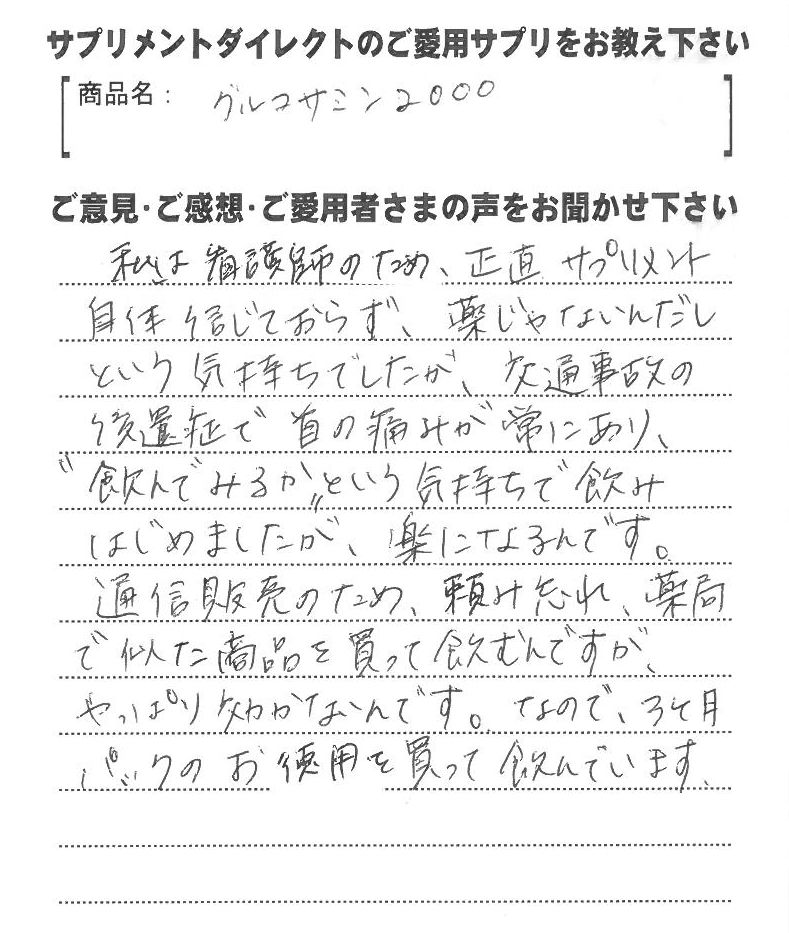 サプリメントダイレクトのご愛用サプリをお教え下さい
商品名： グルコサミン2000
ご意見・ご感想・ご愛用者さまの声をお聞かせ下さい
私は看護師のため、正直サプリメント
自体信じておらず、薬じゃないんだし
という気持ちでしたが、交通事故の
後遺症で首の痛みが常にあり、
"飲んでみるか"という気持ちで飲み
はじめましたが、楽になるんです。
通信販売のため、頼み忘れ、薬局
で似た商品を買って飲むんですが、
やっぱり効かないんです。なので、3ヶ月
パックのお徳用を買って飲んでいます。